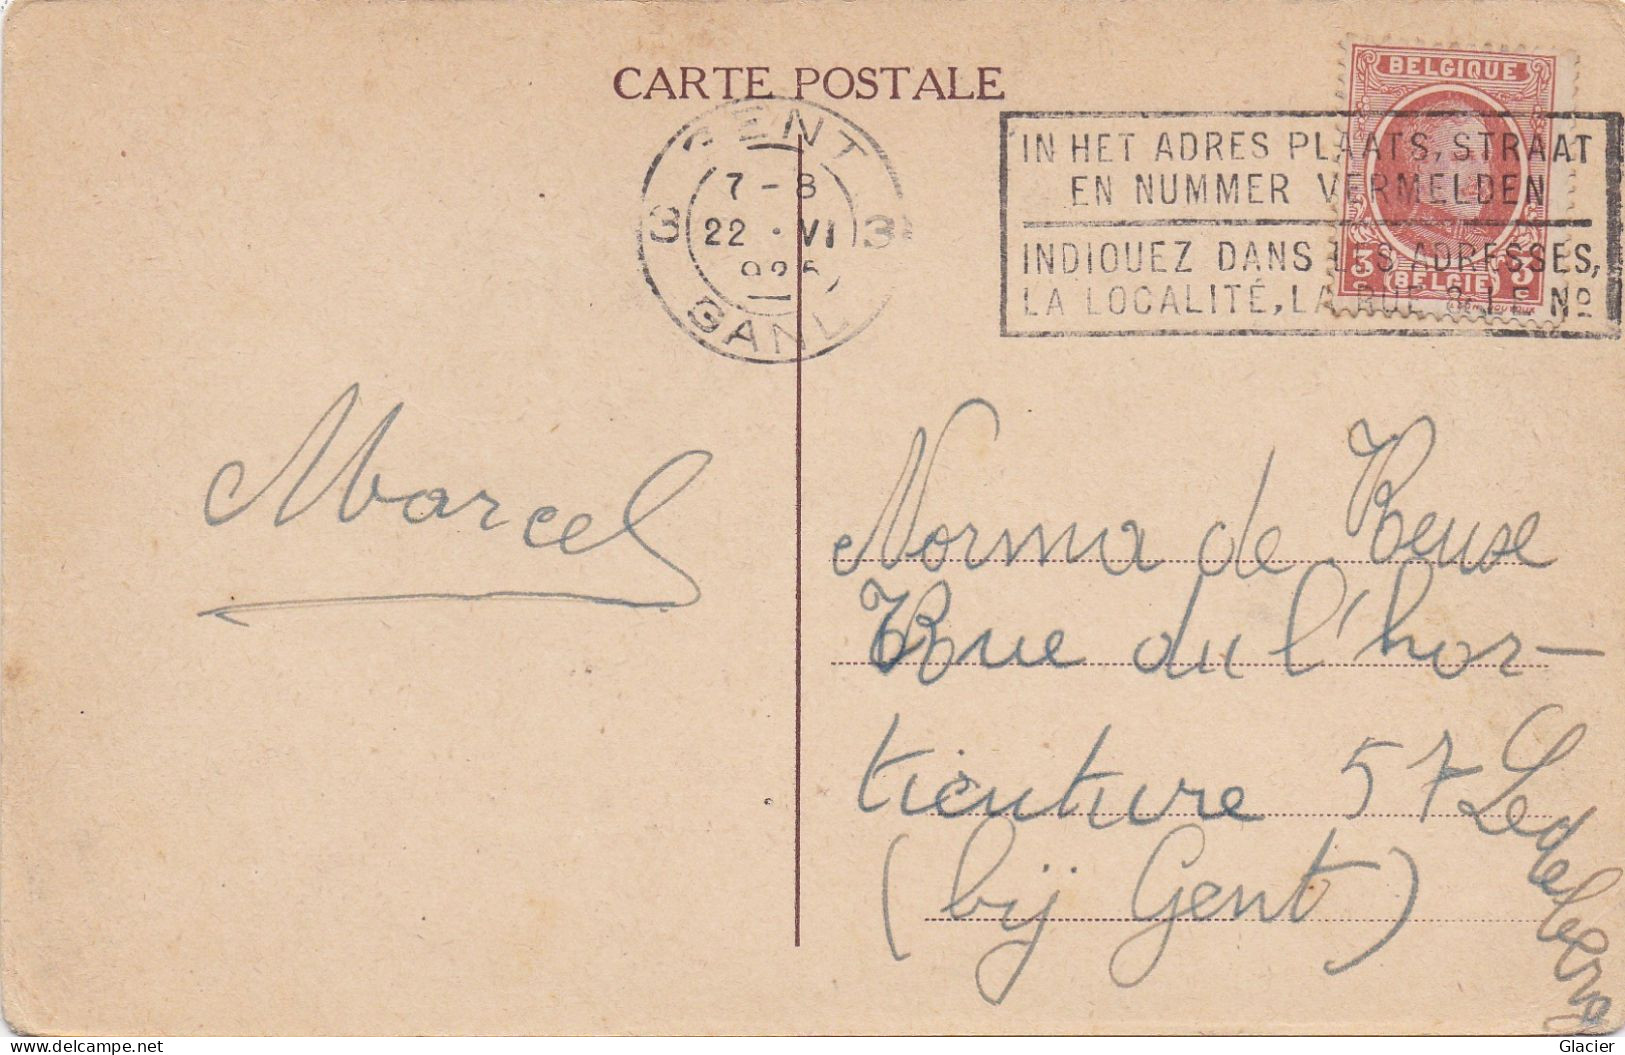 CARTE POSTALE
BELGIQUE
GENT
7-8
3 22·VI 3
GAND
IN HET ADRES PLAATS, STRAAT
EN NUMMER VERMELDEN
INDIQUEZ DANS LES ADRESSES,
LA LOCALITÉ, LA RUE & LE Nº
3c (BELGIË) 3c
Marcel
Norma de Keuse
Rue du l'hor-
ticuture 57 Ledeberg
(bij Gent)
delcampe.net
Glacier